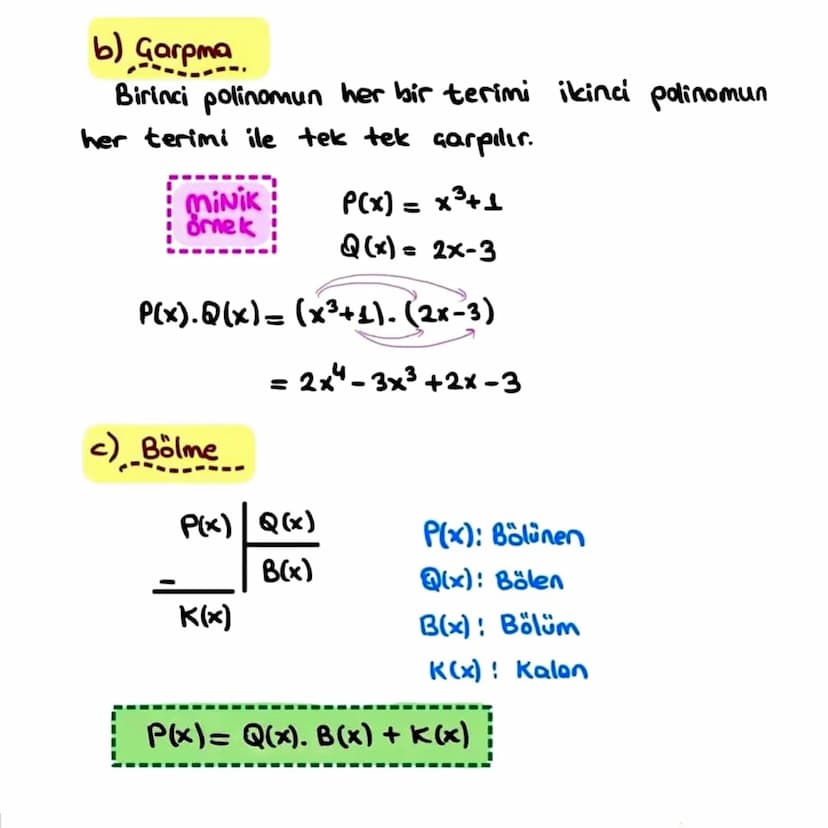 b) Çarpma
Birinci polinomun her bir terimi ikinci polinomun
her terimi ile tek tek çarpılır.
MiNiK
örnek
P(x) = x³+1
Q(x) = 2x-3
P(x).Q(x) = (x³+1).(2x-3)
= 2x⁴ - 3x³ + 2x - 3
c) Bölme
P(x) | Q(x)
B(x)
-
K(x)
P(x): Bölünen
Q(x): Bölen
B(x): Bölüm
K(x): Kalan
P(x) = Q(x). B(x) + K(x)